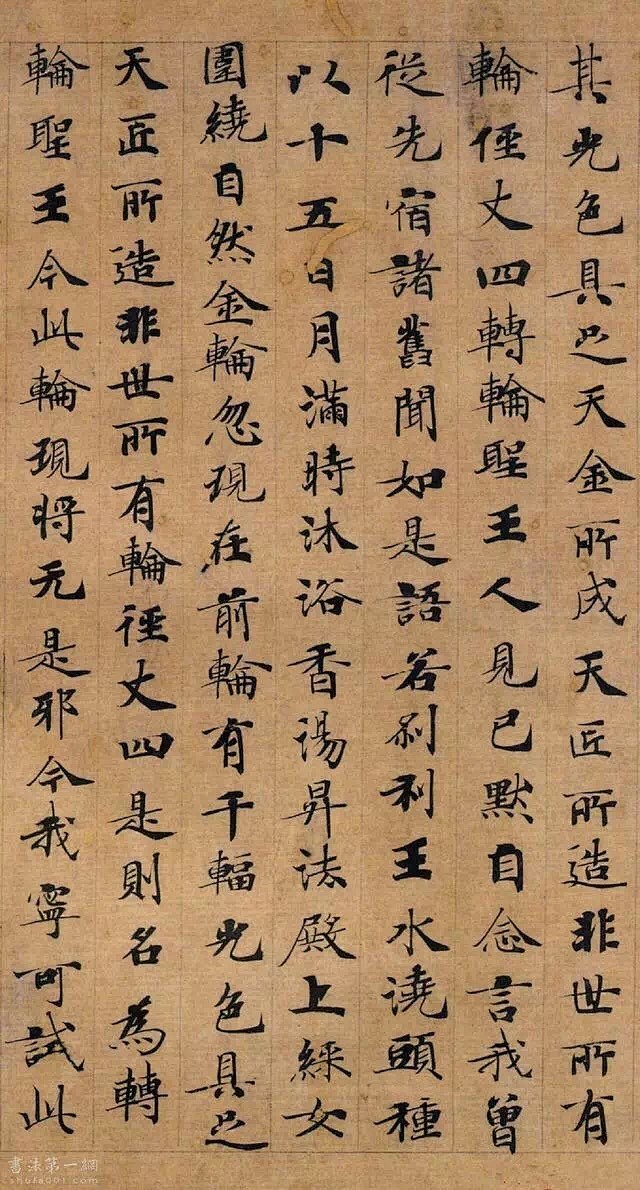 其光色具足天金所成天匠所造非世所有
輪徑丈四轉輪聖王人見已默自念言我曾
從先宿諸舊聞如是語若刹利王水澆頭種
以十五日月滿時沐浴香湯昇法殿上婇女
圍繞自然金輪忽現在前輪有千輻光色具足
天匠所造非世所有輪徑丈四是則名為轉
輪聖王今此輪現將无是邪今我寧可試此
書法第一網
shufa001.com